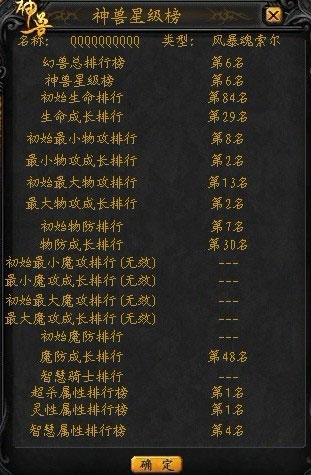 神兽
神兽星级榜
名称: QQQQQQQQQQ 类型: 风暴魂索尔
幻兽总排行榜 第6名
神兽星级榜 第6名
初始生命排行 第84名
生命成长排行 第29名
初始最小物攻排行 第8名
最小物攻成长排行 第2名
初始最大物攻排行 第13名
最大物攻成长排行 第2名
初始物防排行 第7名
物防成长排行 第30名
初始最小魔攻排行(无效) ---
最小魔攻成长排行(无效) ---
初始最大魔攻排行(无效) ---
最大魔攻成长排行(无效) ---
初始魔防排行 ---
魔防成长排行 第48名
智慧骑士排行 ---
超杀属性排行榜 第1名
灵性属性排行榜 第1名
智慧属性排行榜 第4名
确定